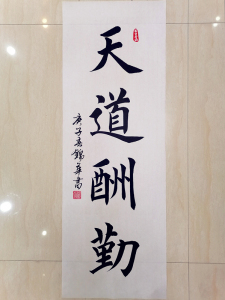 天道酬勤
庚子春锦華書